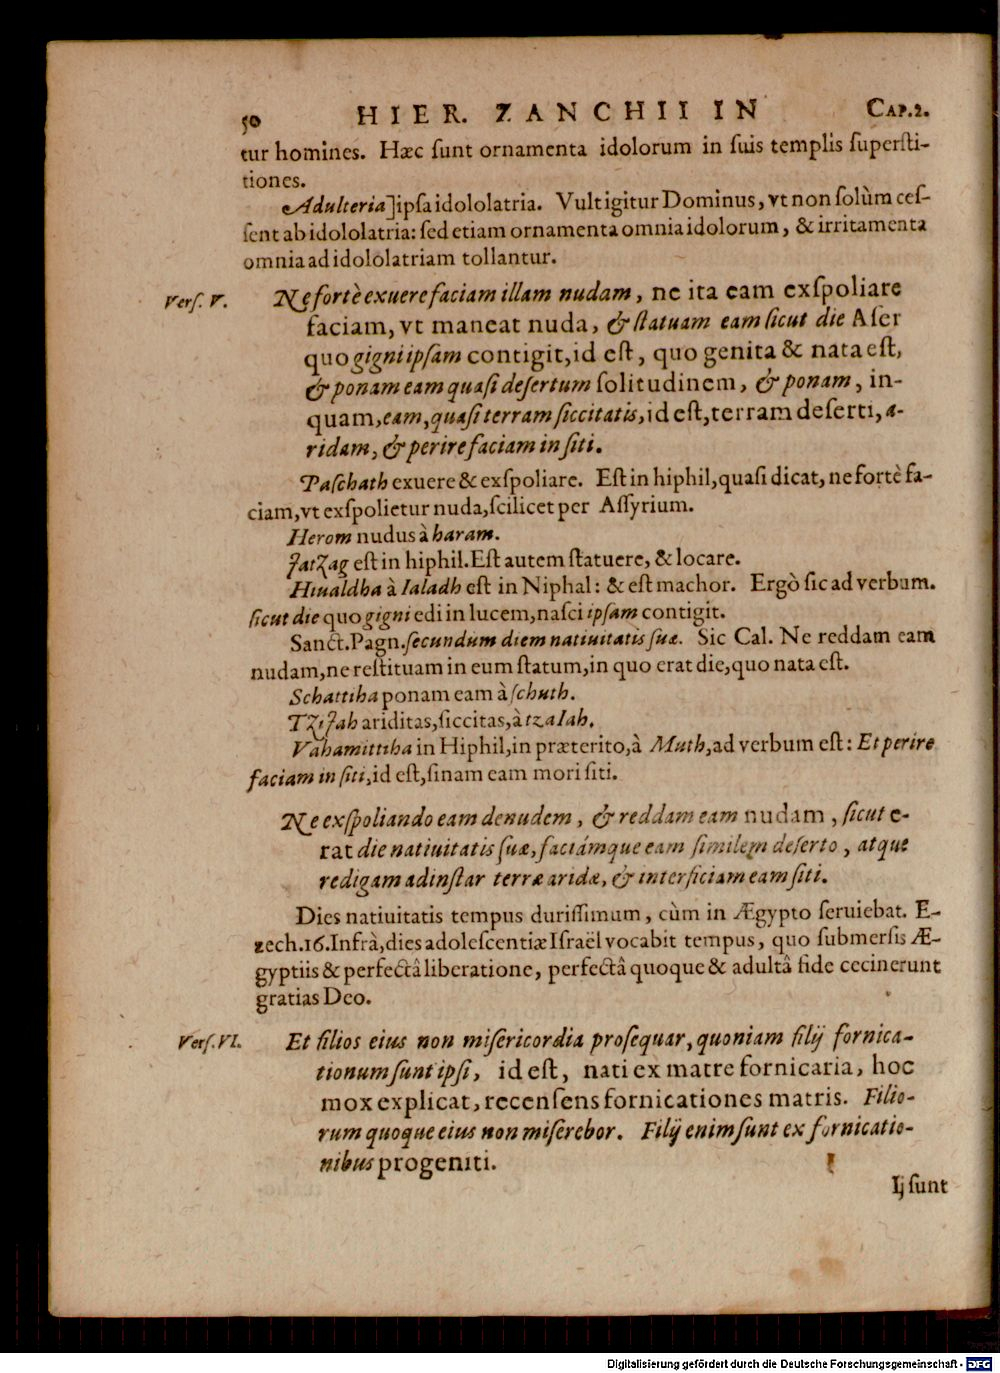 50 HIER. ZANCHII IN CAP.2.
tur homines. Hæc ſunt ornamenta idolorum in ſuis templis ſuperſti-
tiones.
Adulteria] ipſa idololatria. Vult igitur Dominus, vt non ſolùm ceſ-
ſent ab idololatria: ſed etiam ornamenta omnia idolorum, & irritamenta
omnia ad idololatriam tollantur.
Verſ. V. Ne fortè exuere faciam illam nudam, ne ita eam exſpoliare
faciam, vt maneat nuda, & ſtatuam eam ſicut die Aſer
quo gigni ipſam contigit, id eſt, quo genita & nata eſt,
& ponam eam quaſi deſertum ſolitudinem, & ponam, in-
quam, eam, quaſi terram ſiccitatis, id eſt, terram deſerti, a-
ridam, & perire faciam in ſiti.
Paſchath exuere & exſpoliare. Eſt in hiphil, quaſi dicat, ne fortè fa-
ciam, vt exſpolietur nuda, ſcilicet per Aſſyrium.
Herom nudus à haram.
Jatzag eſt in hiphil. Eſt autem ſtatuere, & locare.
Hiualdha à Ialadh eſt in Niphal: & eſt machor. Ergò ſic ad verbum.
ſicut die quo gigni edi in lucem, naſci ipſam contigit.
Sanct. Pagn. ſecundum diem natiuitatis ſuæ. Sic Cal. Ne reddam eam
nudam, ne reſtituam in eum ſtatum, in quo erat die, quo nata eſt.
Schattiha ponam eam à ſchuth.
Tzijah ariditas, ſiccitas, à tzalah.
Vahamittiha in Hiphil, in præterito, à Muth, ad verbum eſt: Et perire
faciam in ſiti, id eſt, ſinam eam mori ſiti.
Ne exſpoliando eam denudem, & reddam eam nudam, ſicut e-
rat die natiuitatis ſuæ, faciámque eam ſimilem deſerto, atque
redigam ad inſtar terræ aridæ, & interficiam eam ſiti.
Dies natiuitatis tempus duriſſimum, cùm in Ægypto ſeruiebat. E-
zech.16. Infrà, dies adoleſcentiæ Iſraël vocabit tempus, quo ſubmerſis Æ-
gyptiis & perfectâ liberatione, perfectâ quoque & adultâ fide cecinerunt
gratias Deo.
Verſ. VI. Et filios eius non miſericordia proſequar, quoniam filij fornica-
tionum ſunt ipſi, id eſt, nati ex matre fornicaria, hoc
mox explicat, recenſens fornicationes matris. Filio-
rum quoque eius non miſerebor. Filij enim ſunt ex fornicatio-
nibus progeniti.
Ij ſunt
Digitalisierung gefördert durch die Deutsche Forschungsgemeinschaft - DFG